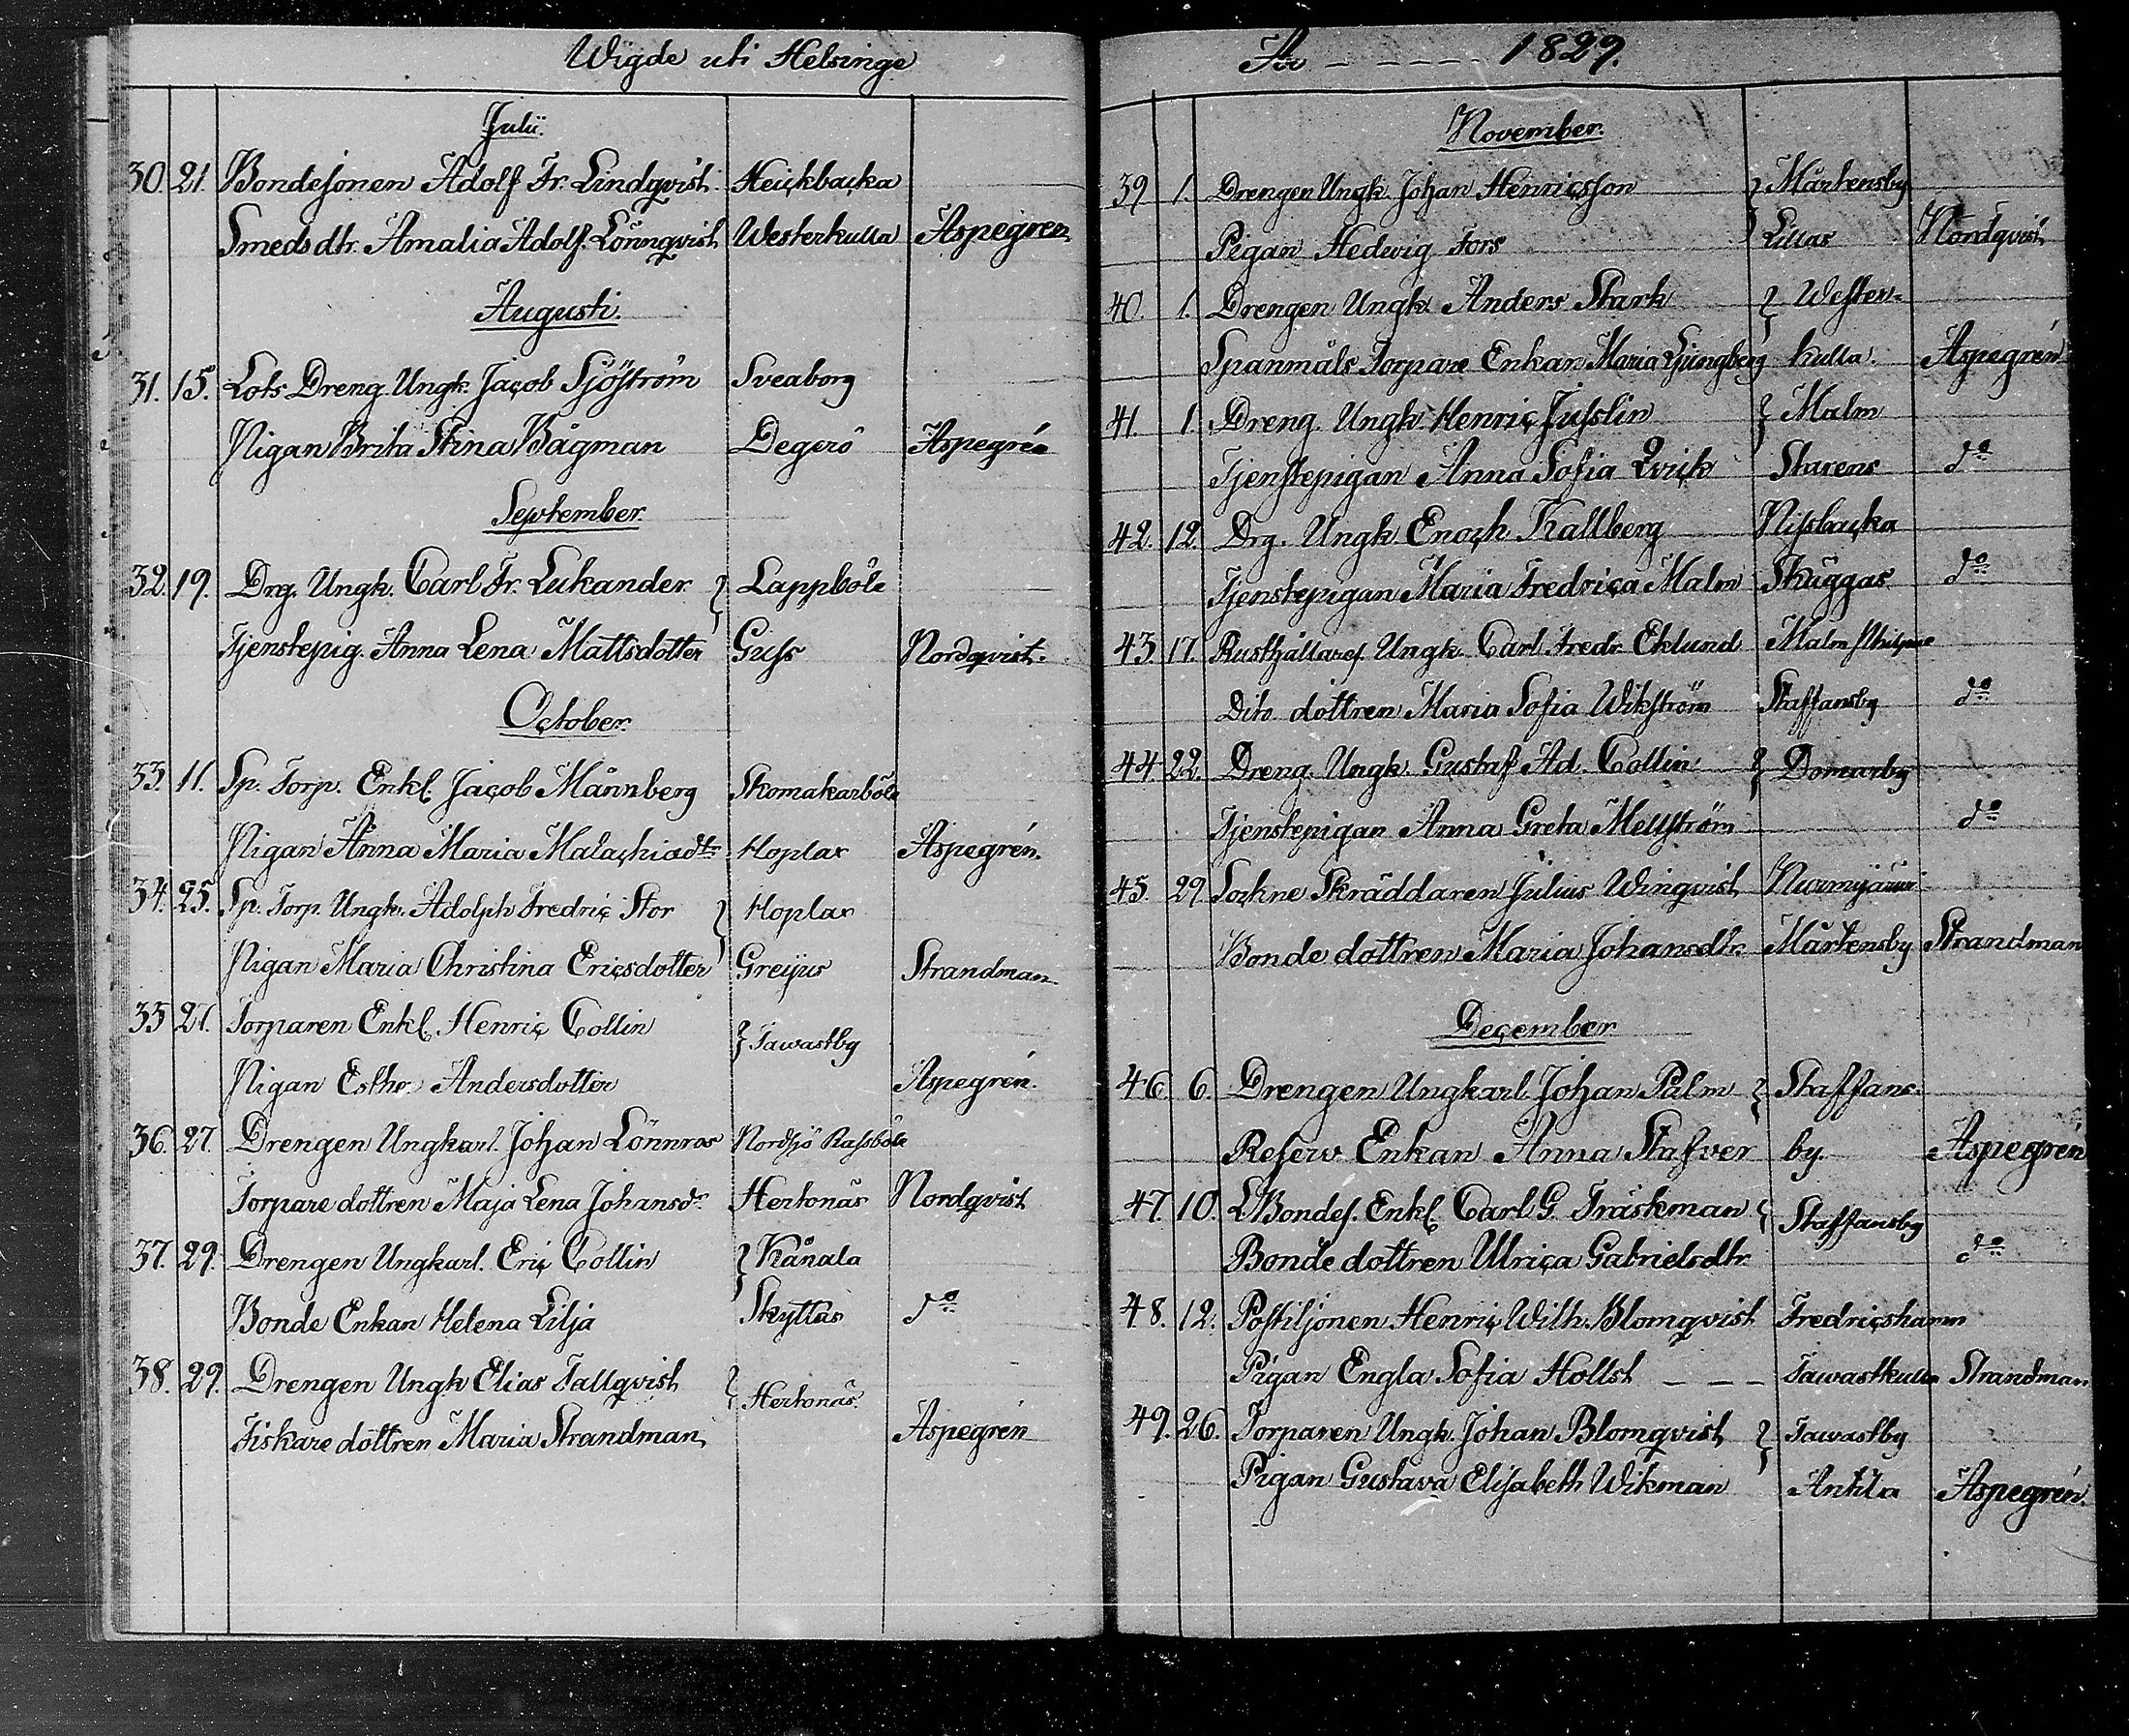 Wigde uti Helsinge
Julii.
30. 21. Bondesonen Adolf Fr. Lindqvist Heickbacka
Smedsdtr. Amalia Adolf. Lönnqvist Westerkulla Aspegren
Augusti.
31. 15. Lots Dreng. Ungk. Jacob Sjöström Sveaborg
Pigan Brita Stina Bågman Degerö Aspegrén
September
32. 19. Drg. Ungk. Carl Fr. Lukander } Lappböle
Tjenstepig. Anna Lena Mattsdotter Guss Nordqvist.
October.
33. 11. Sp. Torp. Enkl. Jacob Månnberg Skomakarböle
Pigan Anna Maria Malachiadtr Hoplax Aspegrén.
34. 25. Sp. Torp. Ungk. Adolph Fredric Stor } Hoplax
Pigan Maria Christina Ericsdotter Greijus Strandman
35 27. Torparen Enkl. Henric Collin } Tawastby
Pigan Esther Andersdotter Aspegrén.
36. 27. Drengen Ungkarl. Johan Lönnros Nordsjö Rassböle
Torpare dottren Maja Lena Johansdr Hertonäs Nordqvist
37. 29. Drengen Ungkarl. Eric Collin } Kånala
Bonde Enkan Helena Lilja Skyttas do
38. 29. Drengen Ungk Elias Tallqvist } Hertonäs
Fiskare dottren Maria Strandman Aspegrén
År - - - - - 1829.
November.
39 1. Drengen Ungk. Johan Henricsson } Mårtensby
Pigan Hedwig Fors Lillas Nordqvist
40. 1. Drengen Ungk. Anders Stark } Wester=
Spanmåls Torpare Enkan Maria Ljungberg kulla. Aspegrén
41. 1. Dreng. Ungk. Henric Jusslin } Malm
Tjenstepigan Anna Sofia Qvick Starens do
42. 12. Drg. Ungk. Enoch Kallberg Nissbacka
Tjenstepigan Maria Fredrica Malm Skuggas do
43. 17. Rusthållares. Ungk. Carl Fredr. Eklund Malm
Dito dottren Maria Sofia Wikström Staffansby do
44 22. Dreng. Ungk. Gustaf Ad. Collin } Domarby
Tjenstepigan Anna Greta Mellström do
45. 29. Sockne Skräddaren Julius Winqvist Nurmijärvi
Bonde dottren Maria Johansdtr. Mårtensby Strandman
December
46 6. Drengen Ungkarl. Johan Palm } Staffans-
Reserv Enkan Anna Stafver by. Aspegrén
47. 10. LBondes. Enkl. Carl G. Träskman } Staffansby
Bonde dottren Ulrica Gabrielsdtr. do
48. 12. Postiljonen Henric Wilh. Blomqvist Fredricshamn
Pigan Engla Sofia Hollst - - - Tawastkulla Strandman
49. 26. Torparen Ungk. Johan Blomqvist } Tawastby
Pigan Gustava Elisabeth Wikman Antila Aspegrén.